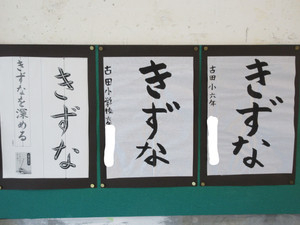 きずな
古田小六年
きずな
古田小学校
きずな
きずなを深める